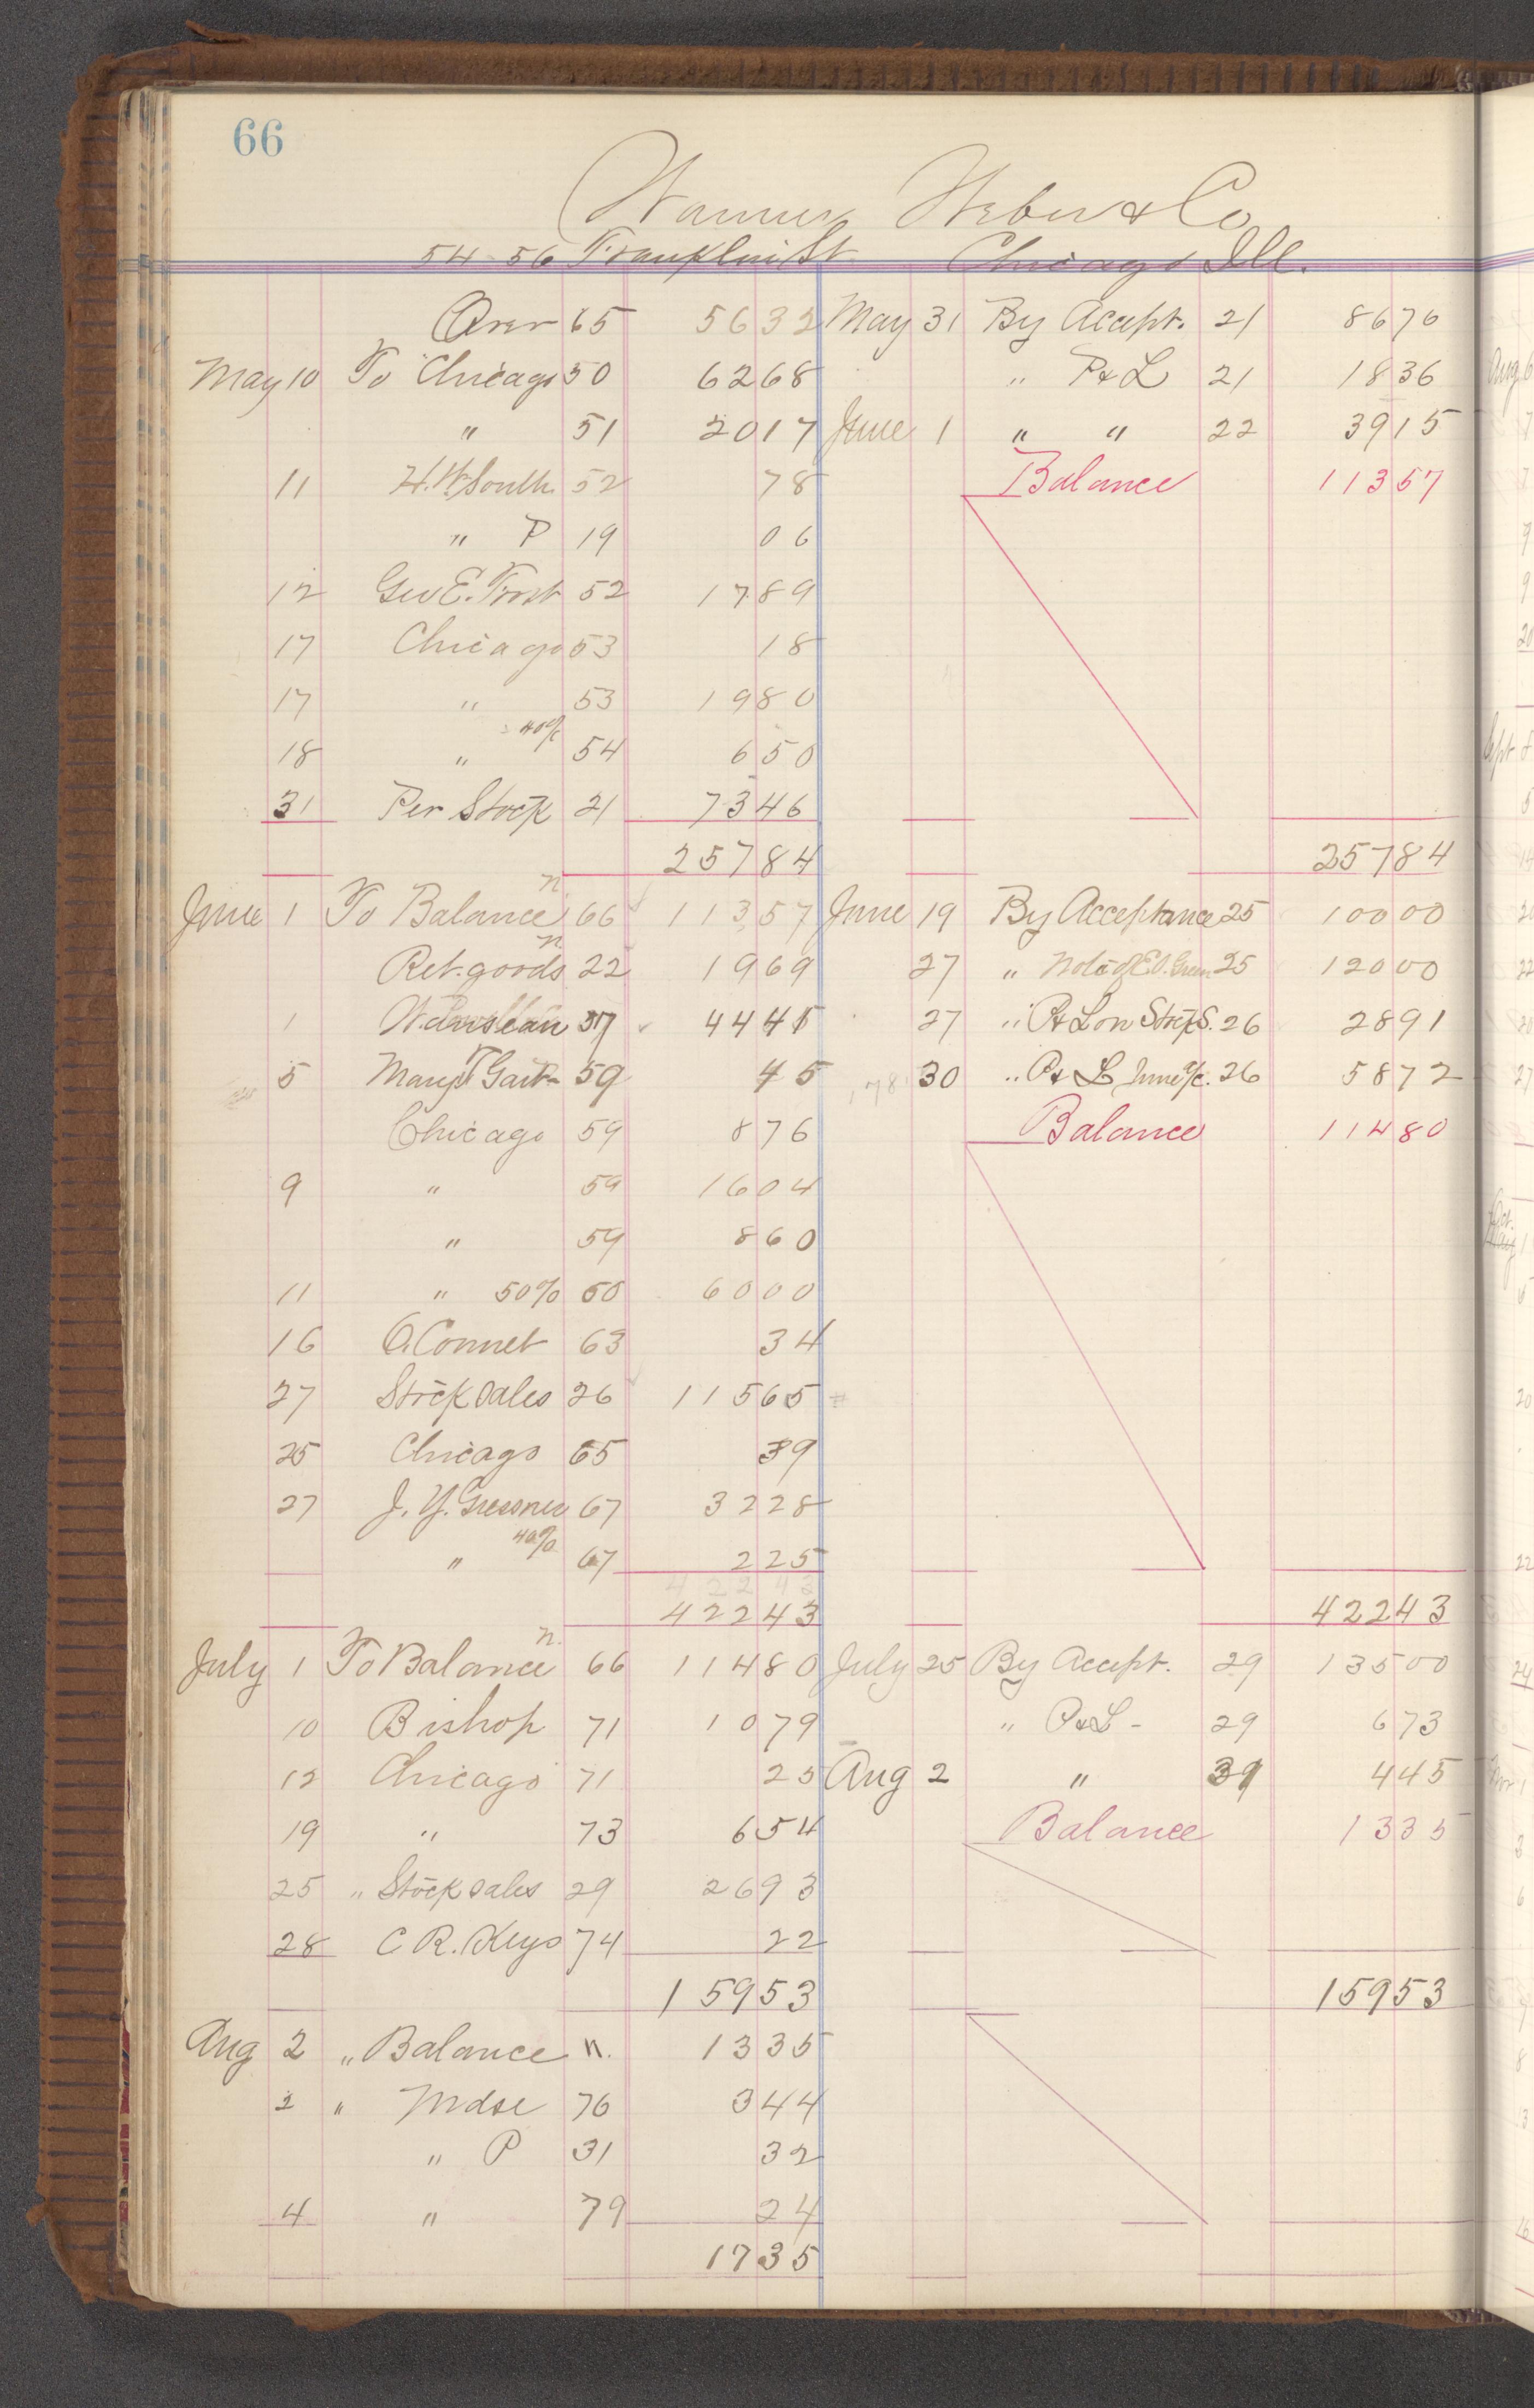 66
Warner, Weber & Co
54 56 Franklin St Chicago Ill.
Over 65 5632 May 31 By Accept. 21 8676
May 10 To Chicago 50 6268 " P & L 21 1836
" 51 2017 June 1 " " 22 3915
11 H. W. South 52 78 Balance 11357
" P 19 06
12 Geo E. Frost 52 1789
17 Chicago 53 18
17 " 53 1980
18 " 40% 54 650
31 Per Stock 21 7346
25784 25784
June 1 To Balance n 66 11357 June 19 By Acceptance 25 10000
Ret. goods n 22 1969 27 " Note of E.O. Green 25 12000
1 37 4441 27 " P & L on Stock S. 26 2891
5 59 45 30 " P & L June a/c. 26 5872
Chicago 59 876 Balance 11480
9 " 59 1604
" 59 860
11 " 50% 60 6000
16 O. Connet 63 34
27 Stock Sales 26 11565
25 Chicago 65 39
27 J. Y. Gressner 67 3228
" 40% 67 225
42243
42243 42243
July 1 To Balance n. 66 11480 July 25 By Accept. 29 13500
10 Bishop 71 1079 " P & L - 29 673
12 Chicago 71 25 Aug 2 " 39 445
19 " 73 654 Balance 1335
25 " Stock Sales 29 2693
28 C R. Keys 74 22
15953 15953
Aug 2 " Balance n. 1335
2 " Mdse 76 344
" P 31 32
4 " 79 24
1735